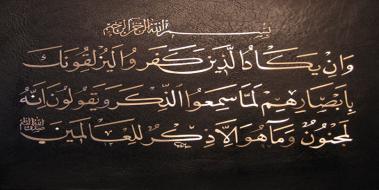 بسم الله الرحمن الرحيم
وَإِنْ يَكَادُ الَّذِينَ كَفَرُوا لَيُزْلِقُونَكَ
بِأَبْصَارِهِمْ لَمَّا سَمِعُوا الذِّكْرَ وَيَقُولُونَ إِنَّهُ
لَمَجْنُونٌ وَمَا هُوَ إِلَّا ذِكْرٌ لِلْعَالَمِينَ